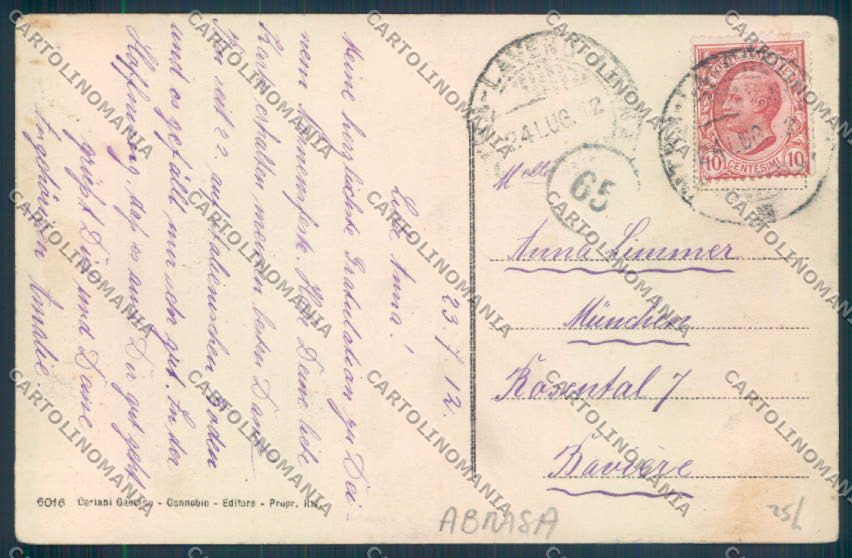 23. 7. 12.
Liebe Anna!
Meine herzlichste Gratulation zu Dei-
nem Namensfeste. Habe Deine liebe
Karte erhalten meinen besten Dank.
Bin seit 22. auf italienischen Boden
und es gefällt mir sehr gut. In der
Hoffnung, daß es auch Dir gut geht
grüßt Dich und Deine
Angehörigen Amalie.
6016 Ceriani Gaetano - Cannobio - Editore - Propr. Ris.
24 LUG. 12
65
10 CENTESIMI 10
Anna Limmer
München
Rosental 7
Bavière
ABMSA
25/
CARTOLINOMANIA